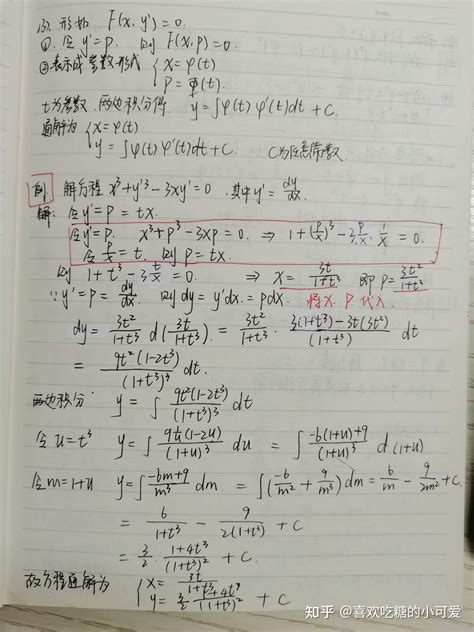 (3). 形如 F(x, y')=0.
①. 令 y'=p. 则 F(x,p)=0.
②表示成参数形式 { x=φ(t) p=Φ(t).
t为参数. 两边积分得. y=∫φ(t)φ'(t)dt+C.
通解为 { x=φ(t) y=∫φ(t)φ'(t)dt+C. C为任意常数.
例. 解方程 x³+y'³-3xy'=0. 其中y'=dy/dx.
解: 令y'=p=tx.
令y'=p. x³+p³-3xp=0. ⇒ 1+(p/x)³-3p/x·1/x=0.
令p/x=t. 则p=tx.
则 1+t³-3t/x=0. ⇒ x=3t/(1+t³) 即p=3t²/(1+t³)
∵y'=p=dy/dx. 则dy=y'dx=pdx. 将x.p代入
dy=3t²/(1+t³) d(3t/(1+t³))=3t²/(1+t³)·(3(1+t³)-3t(3t²))/(1+t³)² dt
=9t²(1-2t³)/(1+t³)³ dt.
两边积分 y=∫9t²(1-2t³)/(1+t³)³ dt
令u=t³ y=∫ (1-2u)/(1+u)³ du =∫(-6(1+u)+9)/(1+u)³ d(1+u)
令m=1+u y=∫(-6m+9)/m³ dm=∫(-6/m²+9/m³)dm=6/m-9/2m²+C
=6/(1+t³)-9/2(1+t³)²+C
=3/2·(1+4t³)/(1+t³)²+C.
故方程通解为 { x=3t/(1+t³) y=3/2 (1+4t³)/(1+t³)²+C
知乎 @喜欢吃糖的小可爱